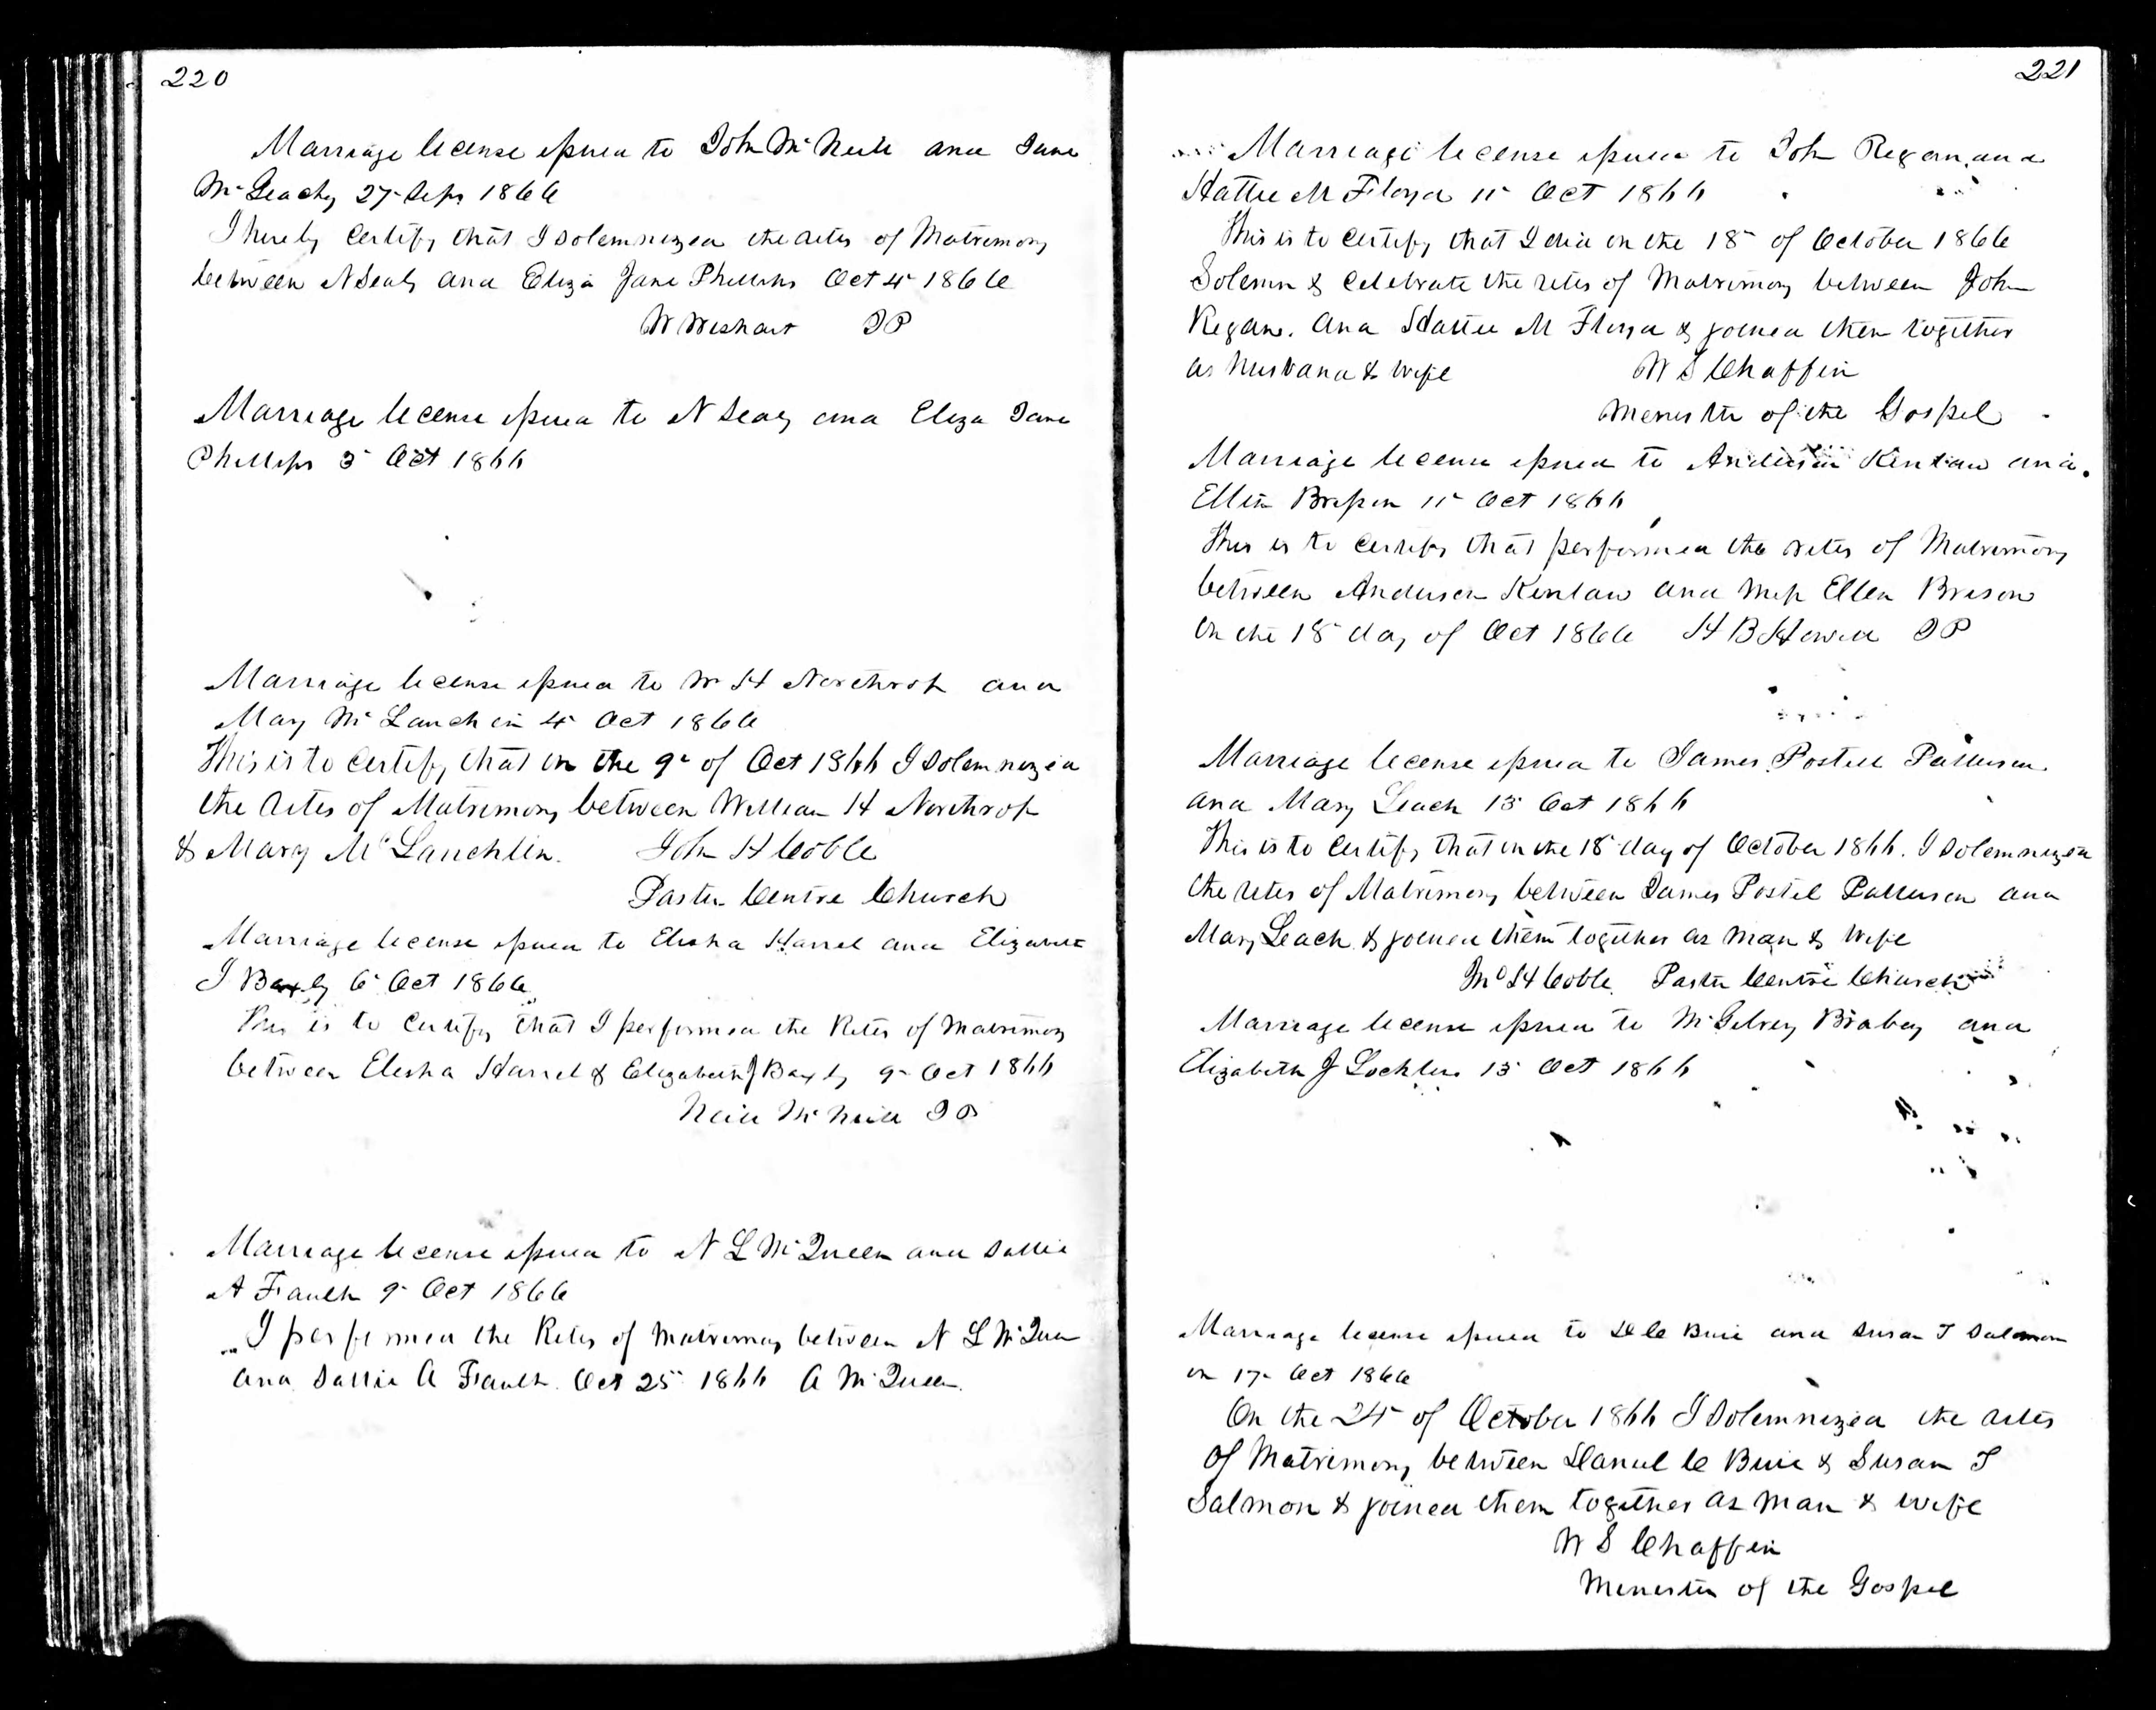 220
Marriage license issued to John McNeill and Jane
McGeachy 27 Sept 1866
I hereby Certify that I solemnized the rites of Matrimony
between N Sealy and Eliza Jane Phillips Oct 4 1866
W Wishart JP
Marriage license issued to N Sealy and Eliza Jane
Phillips 3 Oct 1866
Marriage license issued to W H Northrop and
Mary McLauchlin 4 Oct 1866
This is to Certify that on the 9 of Oct 1866 I solemnized
the rites of Matrimony between William H Northrop
& Mary McLauchlin. John H Coble
Pastor Centre Church
Marriage license issued to Elisha Harrel and Elizabeth
J Baxly 6 Oct 1866
This is to Certify that I performed the Rites of Matrimony
between Elisha Harrel & Elizabeth J Baxly 9 Oct 1866
Neill McNeill JP
Marriage license issued to N L McQueen and Sallie
A Faulk 9 Oct 1866
I performed the Rites of Matrimony between N L McQueen
and Sallie A Faulk. Oct 25 1866 A McQueen.
221
Marriage license issued to John Regan and
Hattie M Floyd 11 Oct 1866
This is to Certify that I did on the 18 of October 1866
Solemn & Celebrate the rites of Matrimony between John
Regan. and Hattie M Floyd & joined them together
as husband & wife W S Chaffin
Minister of the Gospel
Marriage license issued to Anderson Kinlaw and
Ellen Brisson 11 Oct 1866
This is to Certify that performed the rites of Matrimony
between Anderson Kinlaw and Miss Ellen Brison
on the 18 day of Oct 1866 H B Howell JP
Marriage license issued to James Postell Patterson
and Mary Leach 13 Oct 1866
This is to Certify that on the 18 day of October 1866. I solemnized
the rites of Matrimony between James Postel Patterson and
Mary Leach & joined them together as man & wife
Jno H Coble. Pastor Centre Church
Marriage license issued to McGilvry Braboy and
Elizabeth J Locklier 13 Oct 1866
Marriage license issued to D C Buie and Susan T Salmon
on 17 Oct 1866
On the 24 of October 1866 I solemnized the rites
of Matrimony between Daniel C Buie & Susan T
Salmon & joined them together as man & wife
W S Chaffin
Minister of the Gospel